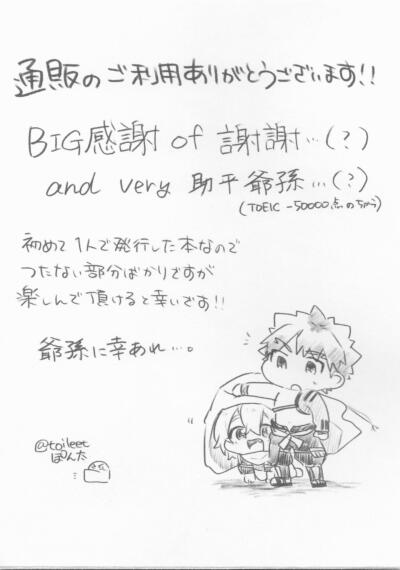 通販のご利用ありがとうございます!!
BIG感謝 of 謝謝…(?)
and very 助平爺孫…(?)
(TOEIC -50000点のちゅう)
初めて1人で発行した本なので
つたない部分ばかりですが
楽しんで頂けると幸いです!!
爺孫に幸あれ…。
@toileet
ぽんた